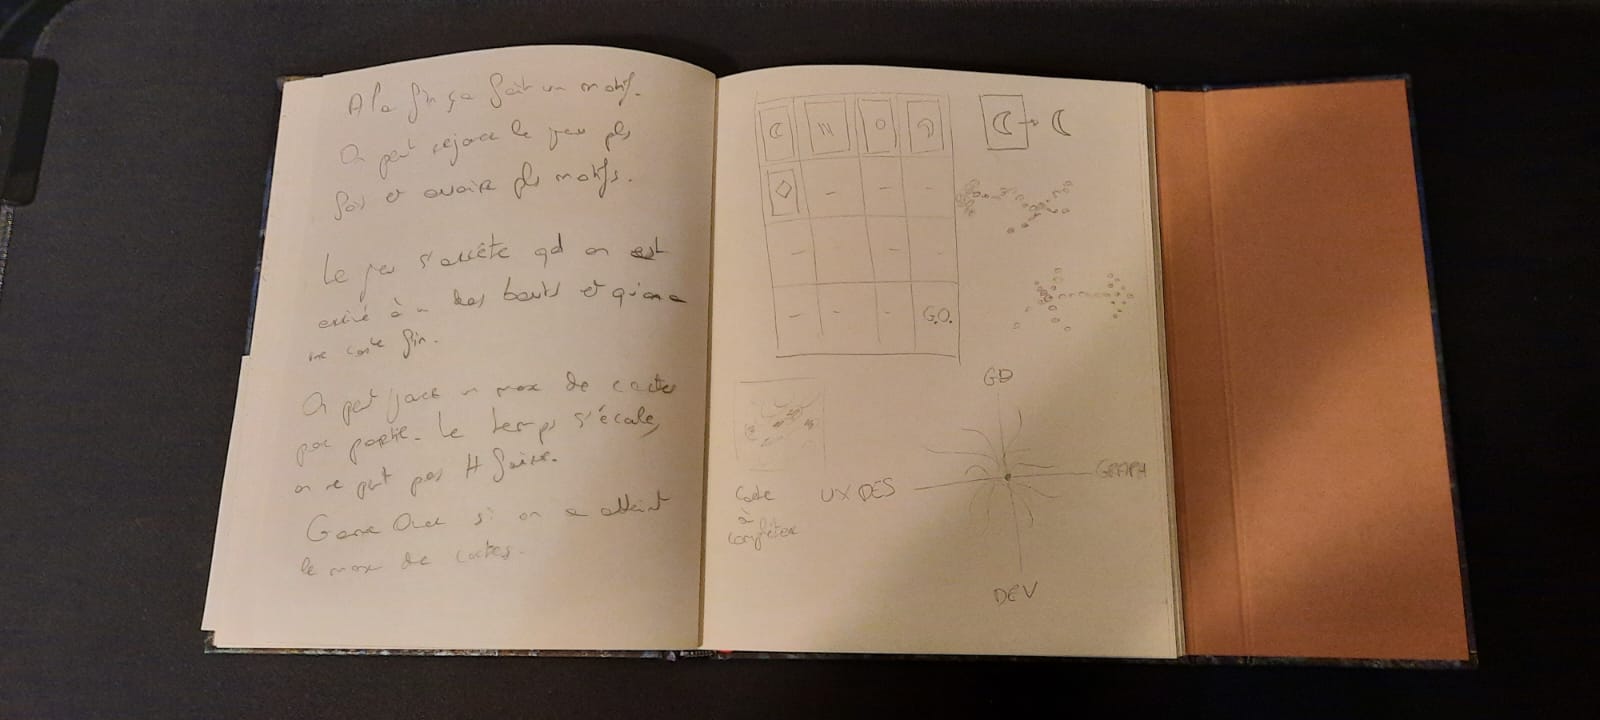 A la fin ça fait un motif.
On peut rejouer le jeu pls
fois et avoir pls motifs.
Le jeu s'arrête qd on est
arrivé à un des bouts et qu'on a
une carte fin.
On peut jouer un max de cartes
par partie. Le temps s'écoule,
on ne peut pas tt faire.
Game Over si on a atteint
le max de cartes.
G.O.
GD
GRAPH
UX DES
DEV
Carte
à
compléter